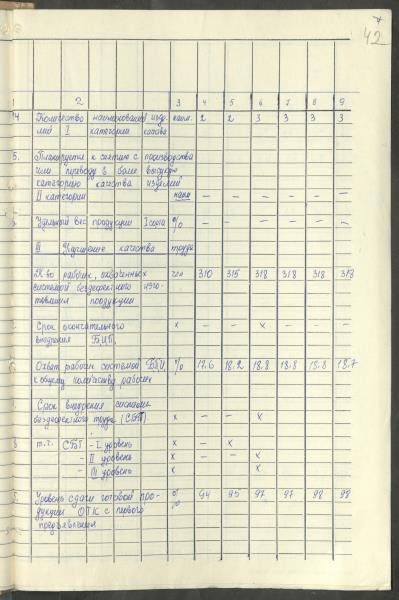 42
1 2 3 4 5 6 7 8 9
4 Количество наименований изде- наим. 2 2 3 3 3 3
лий I категории качества
5. Планируется к снятию с производства
или переводу в более высокую
категорию качества изделий
II категории наим — — — — — —
Удельный вес продукции I сорта % — — — — — —
III Улучшение качества труда
К-во рабочих, охваченных чел 310 315 318 318 318 318
системой бездефектного изго-
товления продукции
Срок окончательного х — — х — — —
внедрения БИП.
Охват рабочих системой БИП, % 17.6 18.2 18.8 18.8 18.8 18.7
к общему количеству рабочих
Срок внедрения системы
бездефектного труда (СБТ). х — — х
8 т.ч. СБТ - I уровень х — х
- II уровень х — — х
- III уровень х х
Уровень сдачи готовой про- % 94 95 97 97 98 98
дукции ОТК с первого
предъявления